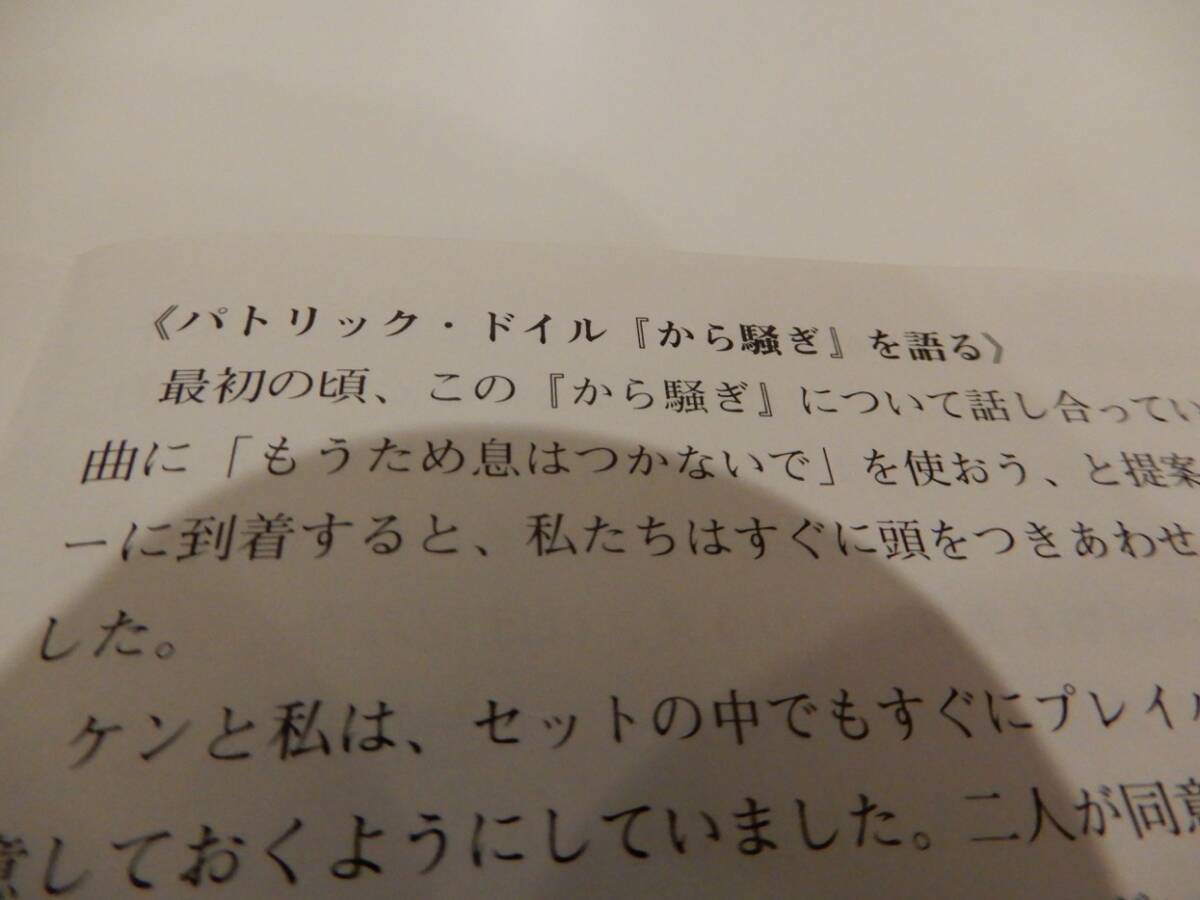 《パトリック・ドイル『から騒ぎ』を語る》
最初の頃、この『から騒ぎ』について話し合ってい
曲に「もうため息はつかないで」を使おう、と提案
ーに到着すると、私たちはすぐに頭をつきあわせ
した。
ケンと私は、セットの中でもすぐにプレイル
意しておくようにしていました。二人が同意